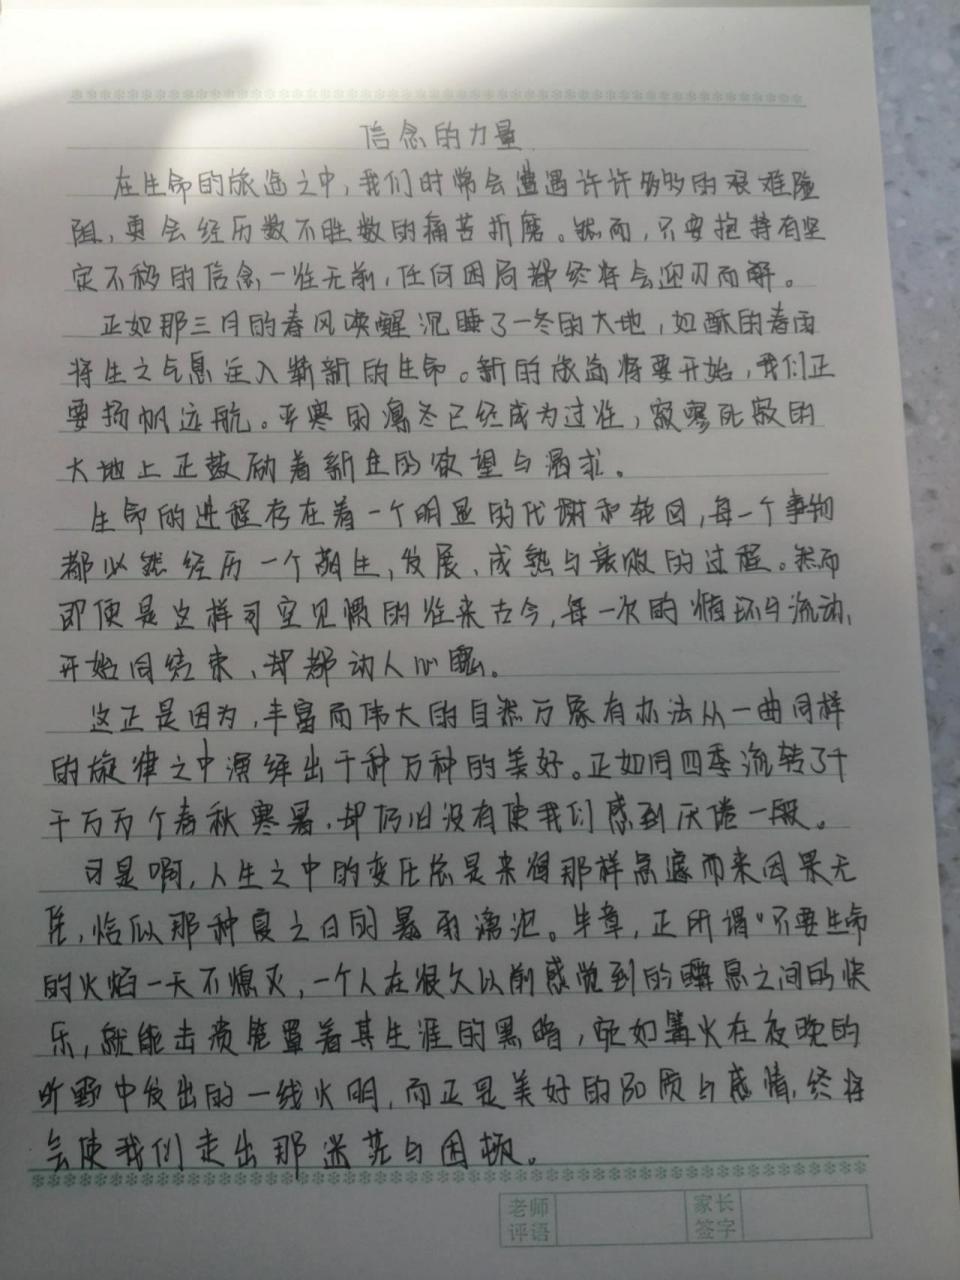 信念的力量
在生命的旅途之中,我们时常会遭遇许许多多的艰难险
阻,更会经历数不胜数的痛苦折磨。然而,只要抱持有坚
定不移的信念一往无前,任何困局都终将会迎刃而解。
正如那三月的春风唤醒沉睡了一冬的大地,如酥的春雨
将生之气息注入崭新的生命。新的旅途将要开始,我们正
要扬帆远航。严寒的凛冬已经成为过往,寂寥死寂的
大地上正鼓励着新生的欲望与渴求。
生命的进程存在着一个明显的代谢和轮回,每一个事物
都必然经历一个萌生,发展、成熟与衰败的过程。然而
即使是这样司空见惯的往来古今,每一次的循环与流动、
开始同结束,却都动人心魄。
这正是因为,丰富而伟大的自然万象有办法从一曲同样
的旋律之中演绎出千种万种的美好。正如同四季流转了千
千万万个春秋寒暑,却仍旧没有使我们感到厌倦一般。
可是啊,人生之中的变化总是来得那样急遽而来因果无
凭,恰似那种夏之日的暴雨滂沱。毕竟,正所谓“只要生命
的火焰一天不熄灭,一个人在很久以前感觉到的瞬息之间的快
乐,就能击溃笼罩着其生涯的黑暗,宛如篝火在夜晚的
旷野中发出的一线火明,而正是美好的品质与感情,终将
会使我们走出那迷茫与困顿。
老师
评语
家长
签字